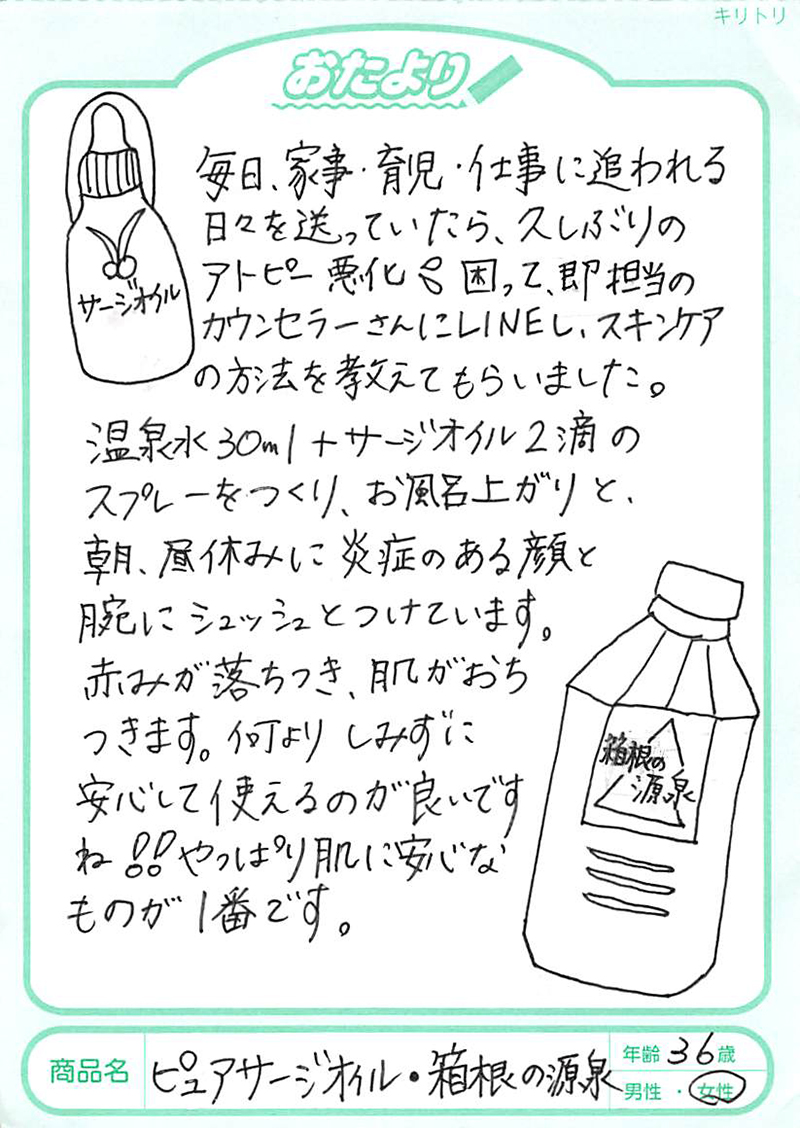 キリトリ
おたより
サージオイル
毎日、家事・育児・仕事に追われる
日々を送っていたら、久しぶりの
アトピー悪化 困って、即担当の
カウンセラーさんにLINEし、スキンケア
の方法を教えてもらいました。
温泉水30ml+サージオイル2滴の
スプレーをつくり、お風呂上がりと、
朝、昼休みに炎症のある顔と
腕にシュッシュとつけています。
赤みが落ちつき、肌がおち
つきます。何より しみずに
安心して使えるのが良いです
ね!! やっぱり肌に安心な
ものが1番です。
箱根の
源泉
商品名 ピュアサージオイル・箱根の源泉
年齢 36歳
男性・女性